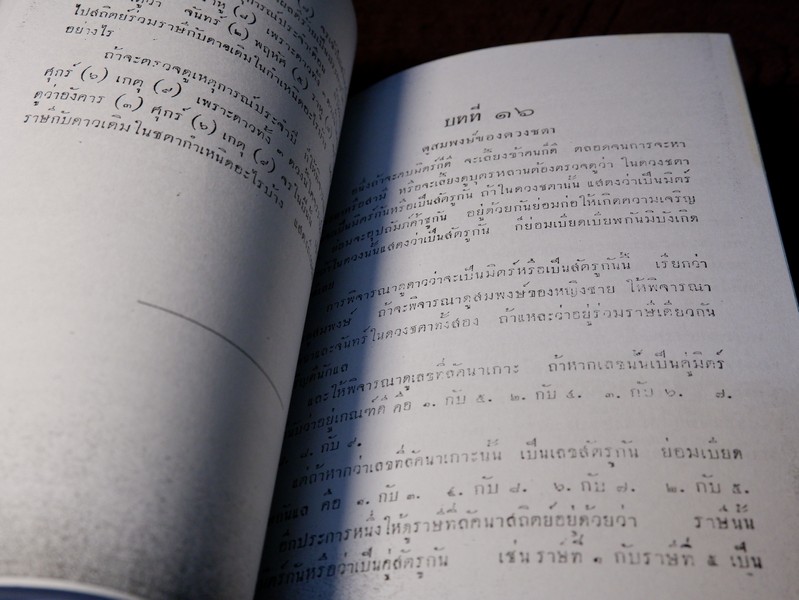 ไปสถิตย์ร่วมราษีกับดาวเดิมในกำเหนิด
อย่างไร
ถ้าจะตรวจดูเหตุการณ์ประจำปี
ศุกร์ (๖) เกตุ (๙) เพราะดาวทั้ง ๓
ดูว่าอังคาร (๓) ศุกร์ (๖) เกตุ (๙)
ราษีกับดาวเดิมในชตากำเหนิดอะไรบ้าง
บทที่ ๑๖
ดูสมพงษ์ของดวงชตา
จะคบมิตร์ก็ดี จะเลี้ยงข้าคนก็ดี ตลอดจนการจะหา
หรือสามี หรือจะเลี้ยงดูบุตรหลานต้องตรวจดูว่า ในดวงชตา
เป็นมิตร์กันหรือเป็นสัตรูกัน ถ้าในดวงชตานั้น แสดงว่าเป็นมิตร์
จะอุปถัมภ์ค้ำชูกัน อยู่ด้วยกันย่อมก่อให้เกิดความเจริญ
ในดวงนั้นแสดงว่าเป็นสัตรูกัน ก็ย่อมเบียดเบียฬกันมิบังเกิด
การพิจารณาดูดาวว่าจะเป็นมิตร์หรือเป็นสัตรูกันนี้ เรียกว่า
สมพงษ์ ถ้าจะพิจารณาดูสมพงษ์ของหญิงชาย ให้พิจารณา
และจันทร์ในดวงชตาทั้งสอง ถ้าแหละว่าอยู่ร่วมราษีเดียวกัน
ดีนักแล
และให้พิจารณาดูเลขที่ลัคนาเกาะ ถ้าหากเลขนั้นเป็นคู่มิตร์
ว่าอยู่เกณฑ์ดี คือ ๑. กับ ๕. ๒. กับ ๔. ๓. กับ ๖. ๗.
๘. กับ ๙.
แต่ถ้าหากว่าเลขที่ลัคนาเกาะนั้น เป็นเลขสัตรูกัน ย่อมเบียด
กันแล คือ ๑. กับ ๓. ๔. กับ ๘. ๖. กับ ๗. ๒. กับ ๕.
อีกประการหนึ่งให้ดูราษีที่ลัคนาสถิตย์อยู่ด้วยว่า ราษีนั้น
มิตร์กันหรือว่าเป็นคู่สัตรูกัน เช่น ราษีที่ ๑ กับราษีที่ ๕ เป็น